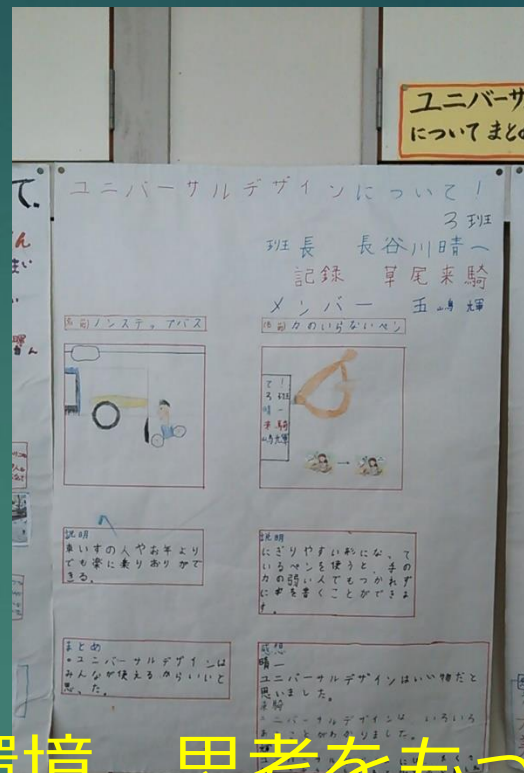 ユニバーサ
についてまとめ
て.
ユニバーサルデザインについて!
3班
班長 長谷川晴一
記録 草尾来騎
メンバー 五嶋 輝
名前 ノンステップバス
名前 力のいらないペン
て!
3班
晴一
来騎
嶋光輝
説明
車いすの人やお年より
でも楽に乗りおりがで
きる。
説明
にぎりやすい形になって
いるペンを使うと、手の
力の弱い人でもつかれず
に字を書くことができま
す。
まとめ
・ユニバーサルデザインは
みんなが使えるからいいと
思った。
感想
晴一
ユニバーサルデザインはいい物だと
思いました。
来騎
ユニバーサルデザインは いろいろ
あることがわかりました。
環境、思考をもっ